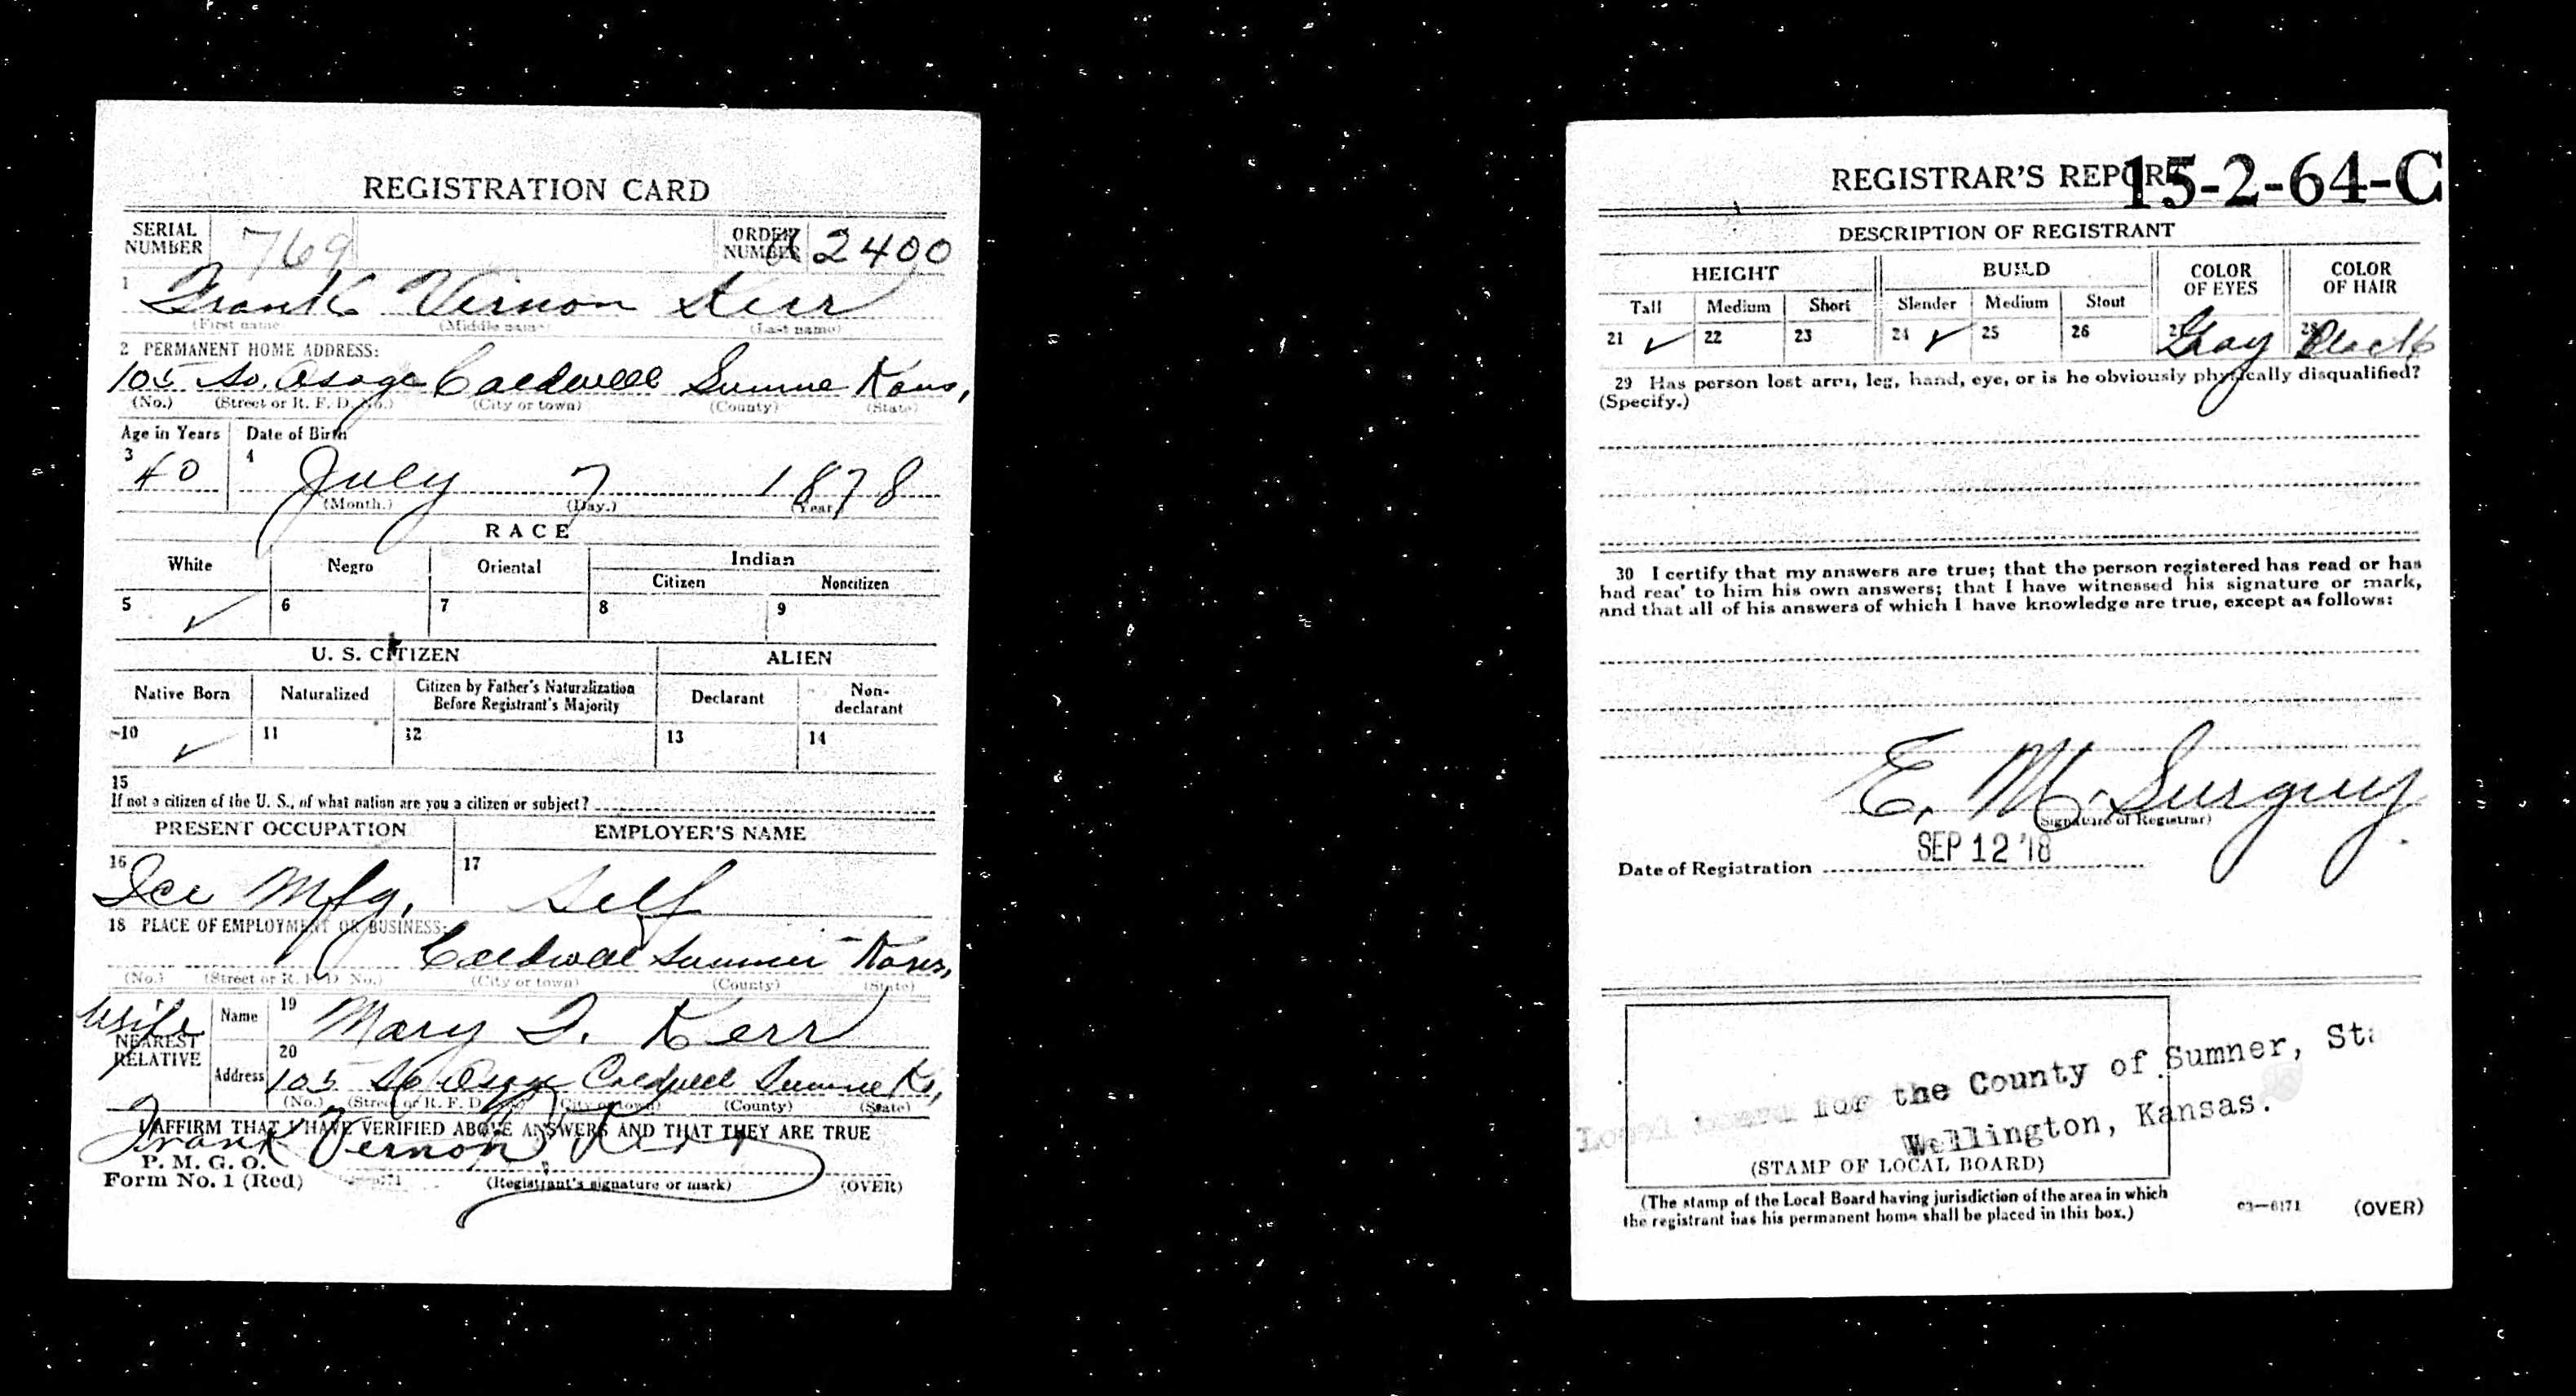 REGISTRATION CARD
SERIAL NUMBER 769 ORDER NUMBER A 2400
1 Frank Vernon Kerr
(First name) (Middle name) (Last name)
2 PERMANENT HOME ADDRESS:
105 So. Osage Caldwell Sumne Kans,
(No.) (Street or R. F. D. No.) (City or town) (County) (State)
Age in Years Date of Birth
3 40 4 July 7 1878
(Month.) (Day.) (Year)
RACE
White Negro Oriental Indian
Citizen Noncitizen
5 ✓ 6 7 8 9
U. S. CITIZEN ALIEN
Native Born Naturalized Citizen by Father's Naturalization Before Registrant's Majority Declarant Non-declarant
10 ✓ 11 12 13 14
15
If not a citizen of the U. S., of what nation are you a citizen or subject?
PRESENT OCCUPATION EMPLOYER'S NAME
16 Ice Mfg. 17 Self
18 PLACE OF EMPLOYMENT OR BUSINESS:
Caldwell Sumner Kans,
(No.) (Street or R. F. D. No.) (City or town) (County) (State)
wife
NEAREST RELATIVE
Name 19 Mary I. Kerr
Address 20 105 So Osage Caldwell Sumne Ks,
(No.) (Street or R. F. D. No.) (City or town) (County) (State)
I AFFIRM THAT I HAVE VERIFIED ABOVE ANSWERS AND THAT THEY ARE TRUE
Frank Vernon Kerr
P. M. G. O.
Form No. 1 (Red) (Registrant's signature or mark) (OVER)
REGISTRAR'S REPORT 15-2-64-C
DESCRIPTION OF REGISTRANT
HEIGHT BUILD COLOR OF EYES COLOR OF HAIR
Tall Medium Short Slender Medium Stout
21 ✓ 22 23 24 ✓ 25 26 27 Gray 28 Black
29 Has person lost arm, leg, hand, eye, or is he obviously physically disqualified?
(Specify.)
30 I certify that my answers are true; that the person registered has read or has
had read to him his own answers; that I have witnessed his signature or mark,
and that all of his answers of which I have knowledge are true, except as follows:
E. M. Surguy
(Signature of Registrar)
Date of Registration SEP 12 '18
Local Board for the County of Sumner, Sta
Wellington, Kansas.
(STAMP OF LOCAL BOARD)
(The stamp of the Local Board having jurisdiction of the area in which
the registrant has his permanent home shall be placed in this box.)
03—6171 (OVER)